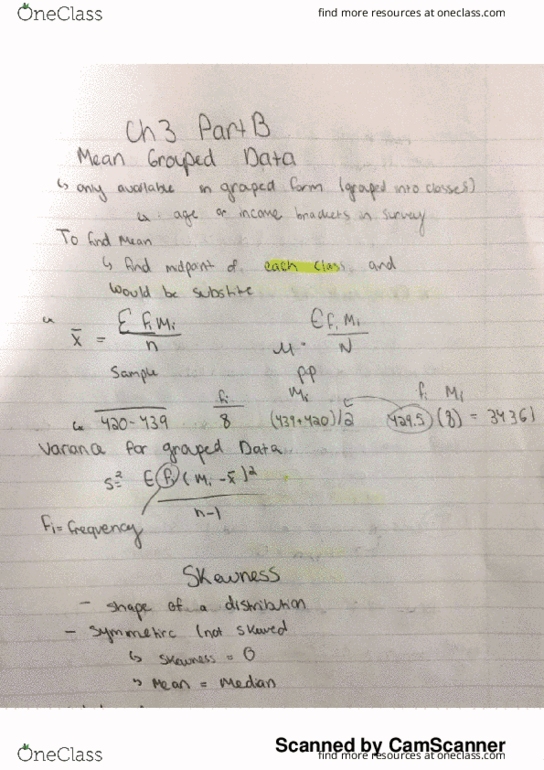 OneClass find more resources at oneclass.com
Ch 3 Part B
Mean Grouped Data
↳ only available in grouped form (grouped into classes)
age or income brackets in survey
To find Mean
↳ find midpoint of each class, and
would be substite
x̄ = Σ fi Mi / n
μ = Σ fi Mi / N
Sample pp
fi Mi fi Mi
420-439 8 (439+420)/2 (429.5)(8) = 3436
for grouped Data
s² = Σ fi (Mi - x̄)² / n-1
fi = frequency
Skewness
- shape of a distribution
- symmetric (not skewed
↳ skewness = 0
↳ Mean = Median
Scanned by CamScanner
OneClass find more resources at oneclass.com